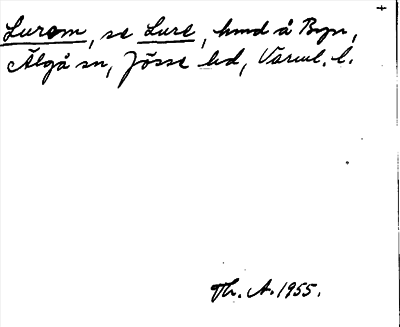 +
Lurom, se Lure, hmd å Byn,
Älgå sn, Jösse hd, Värml. l.
Th. A. 1955.